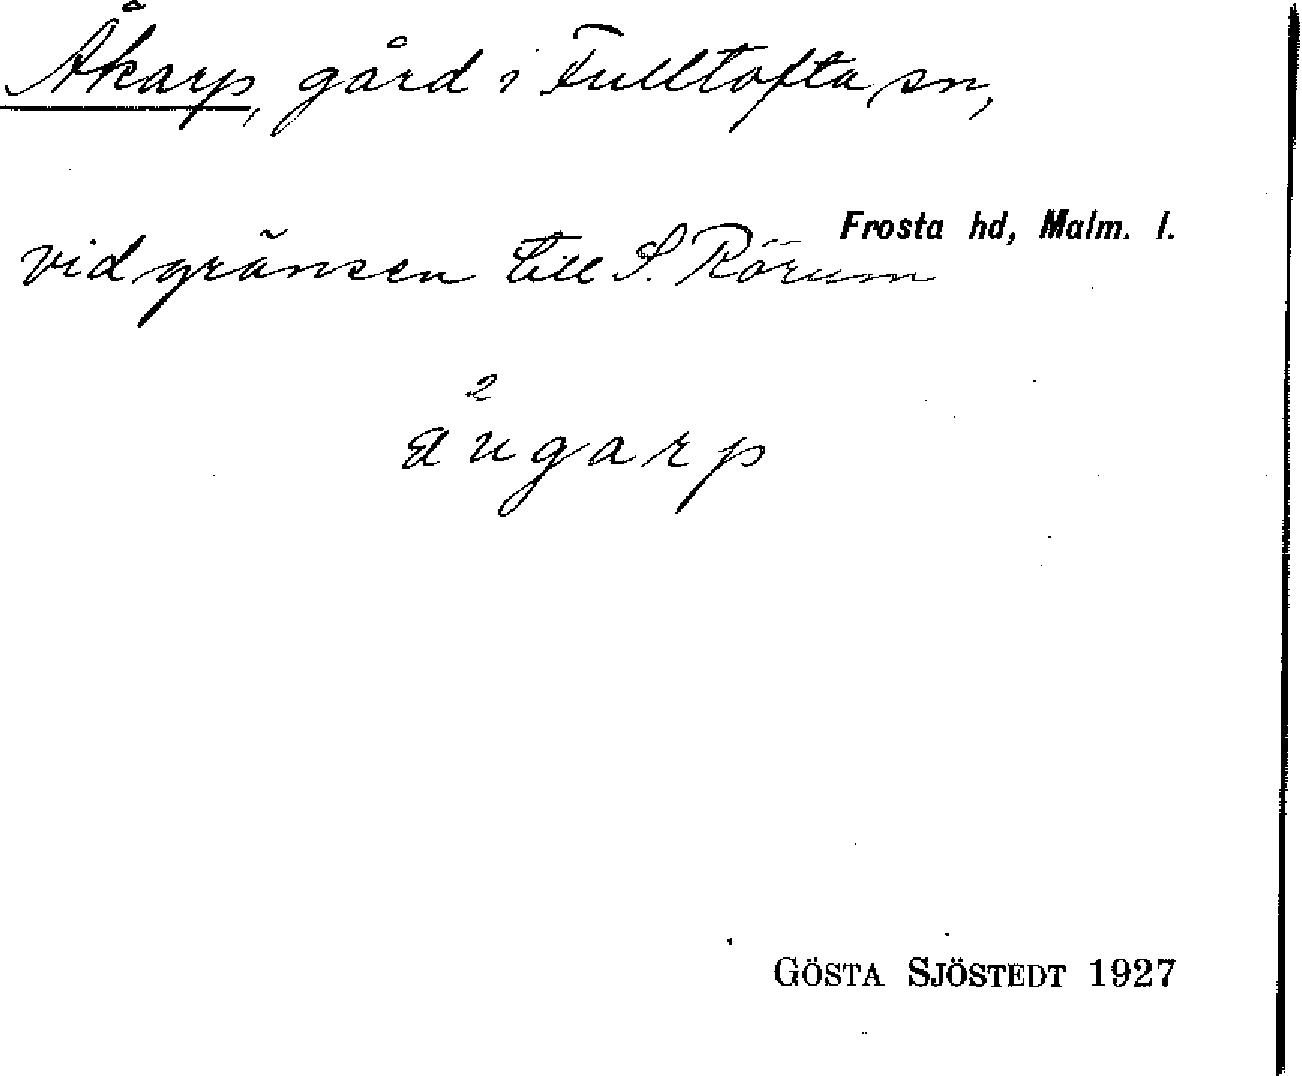 Åkarp, gård i Fulltofta sn,
Frosta hd, Malm. l.
vid gränsen till S. Rörum
2
GÖSTA SJÖSTEDT 1927